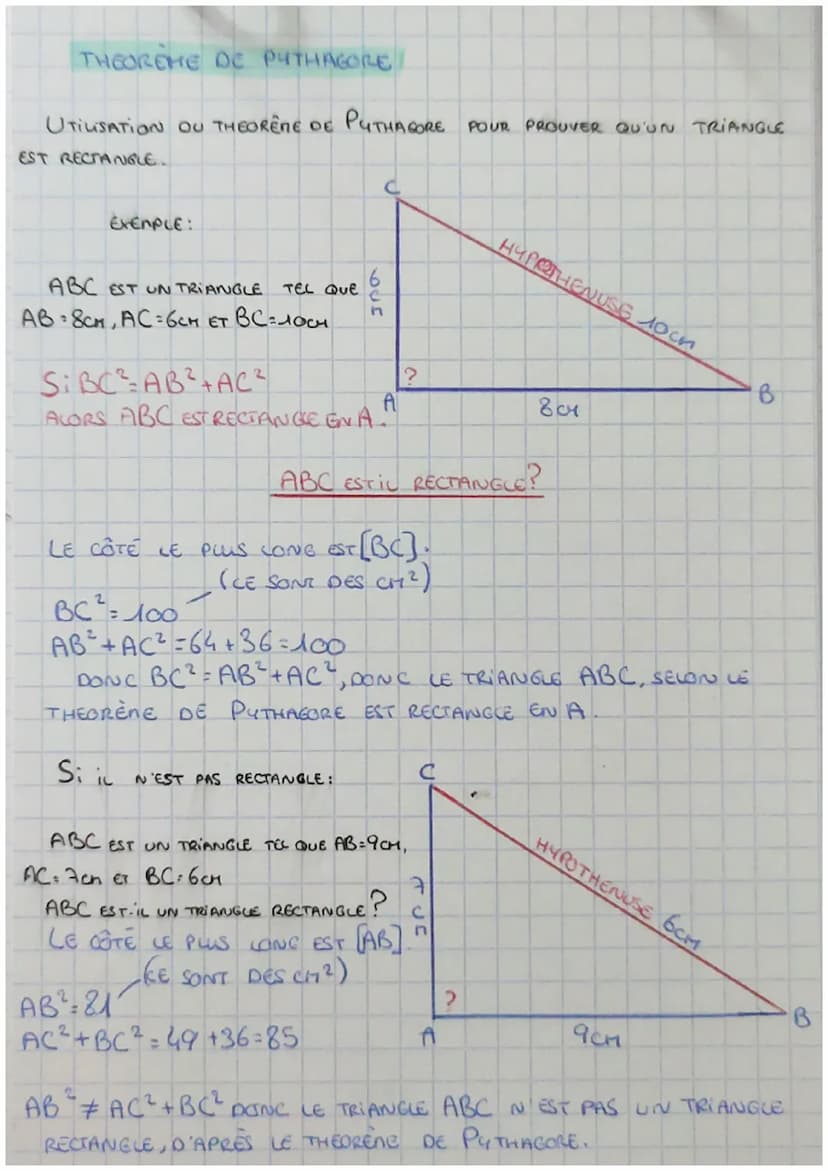 THEORÈME DE PYTHAGORE
UTILISATION DU THEORÊME DE PYTHAGORE POUR PROUVER QU'UN TRIANGLE
EST RECTANGLE.
EXEMPLE:
C
HYPOTHENUSE 10cm
6cm
?
A
8cm
B
ABC EST UN TRIANGLE TEL QUE
AB=8cm, AC=6cm ET BC=10cm
Si BC²=AB²+AC²
ALORS ABC EST RECTANGLE EN A.
ABC EST IL RECTANGLE?
LE CÔTÉ LE PLUS LONG EST [BC].
(CE SONT DES CM²)
BC²=100
AB²+AC²=64+36=100
DONC BC²=AB²+AC², DONC LE TRIANGLE ABC, SELON LE
THEORÈME DE PYTHAGORE EST RECTANGLE EN A.
Si iL N'EST PAS RECTANGLE:
C
HYPOTHENUSE 6cm
7cm
?
A
9cm
B
ABC EST UN TRIANGLE TEL QUE AB=9cm,
AC=7cm ET BC=6cm
ABC EST-iL UN TRIANGLE RECTANGLE?
LE CÔTÉ LE PLUS LONG EST [AB]
(CE SONT DES CM²)
AB²=81
AC²+BC²=49+36=85
AB²≠AC²+BC² DONC LE TRIANGLE ABC N'EST PAS UN TRIANGLE
RECTANGLE, D'APRÈS LE THÉORÈME DE PYTHAGORE.